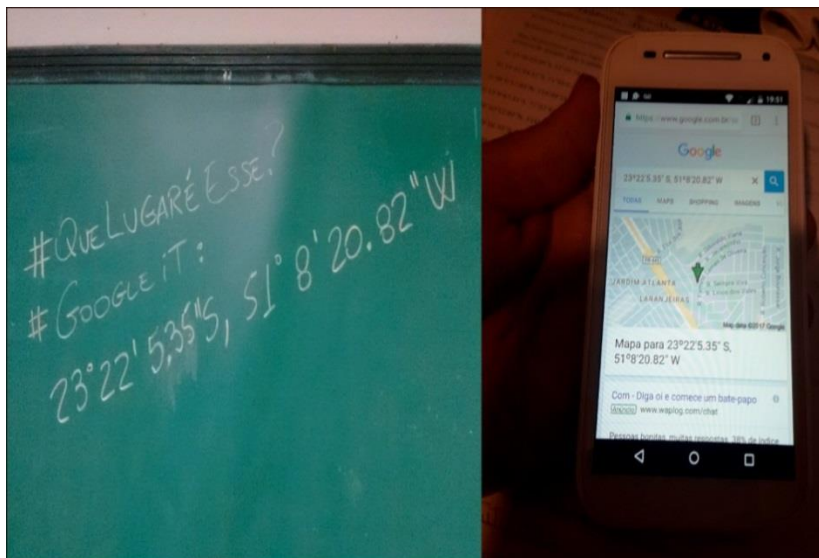 #QUELUGARÉESSE?
#GOOGLE iT:
23°22'5.35"S, 51°8'20.82" W
19:51
https://www.google.com.br/
Google
23°22'5.35" S, 51°8'20.82" W
TODAS MAPS SHOPPING IMAGENS
JARDIM ATLANTA
LARANJEIRAS
Map data ©2017 Google
Mapa para 23°22'5.35" S,
51°8'20.82" W
Com - Diga oi e comece um bate-papo
Anúncio www.waplog.com/chat
Pessoas bonitas, muitas respostas, 38% de índice